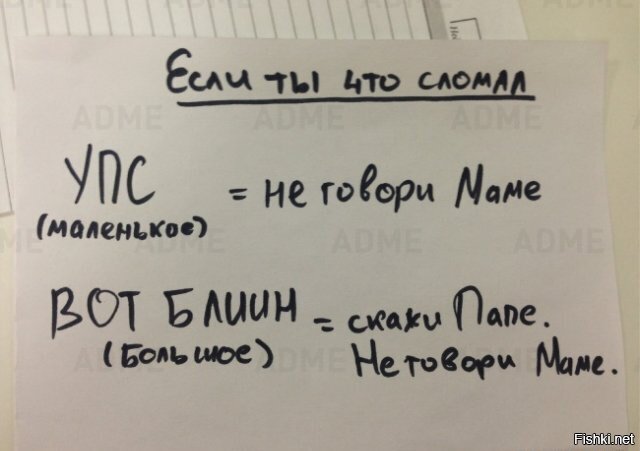 ADME ADME
Если ты что сломал
ADME ADME ADME
УПС = не говори Маме
(маленькое)
ME ADME ADME ADME
ВОТ БЛИИН = скажи Папе.
(Большое) Не говори Маме.
ADME ADME ADME
Fishki.net